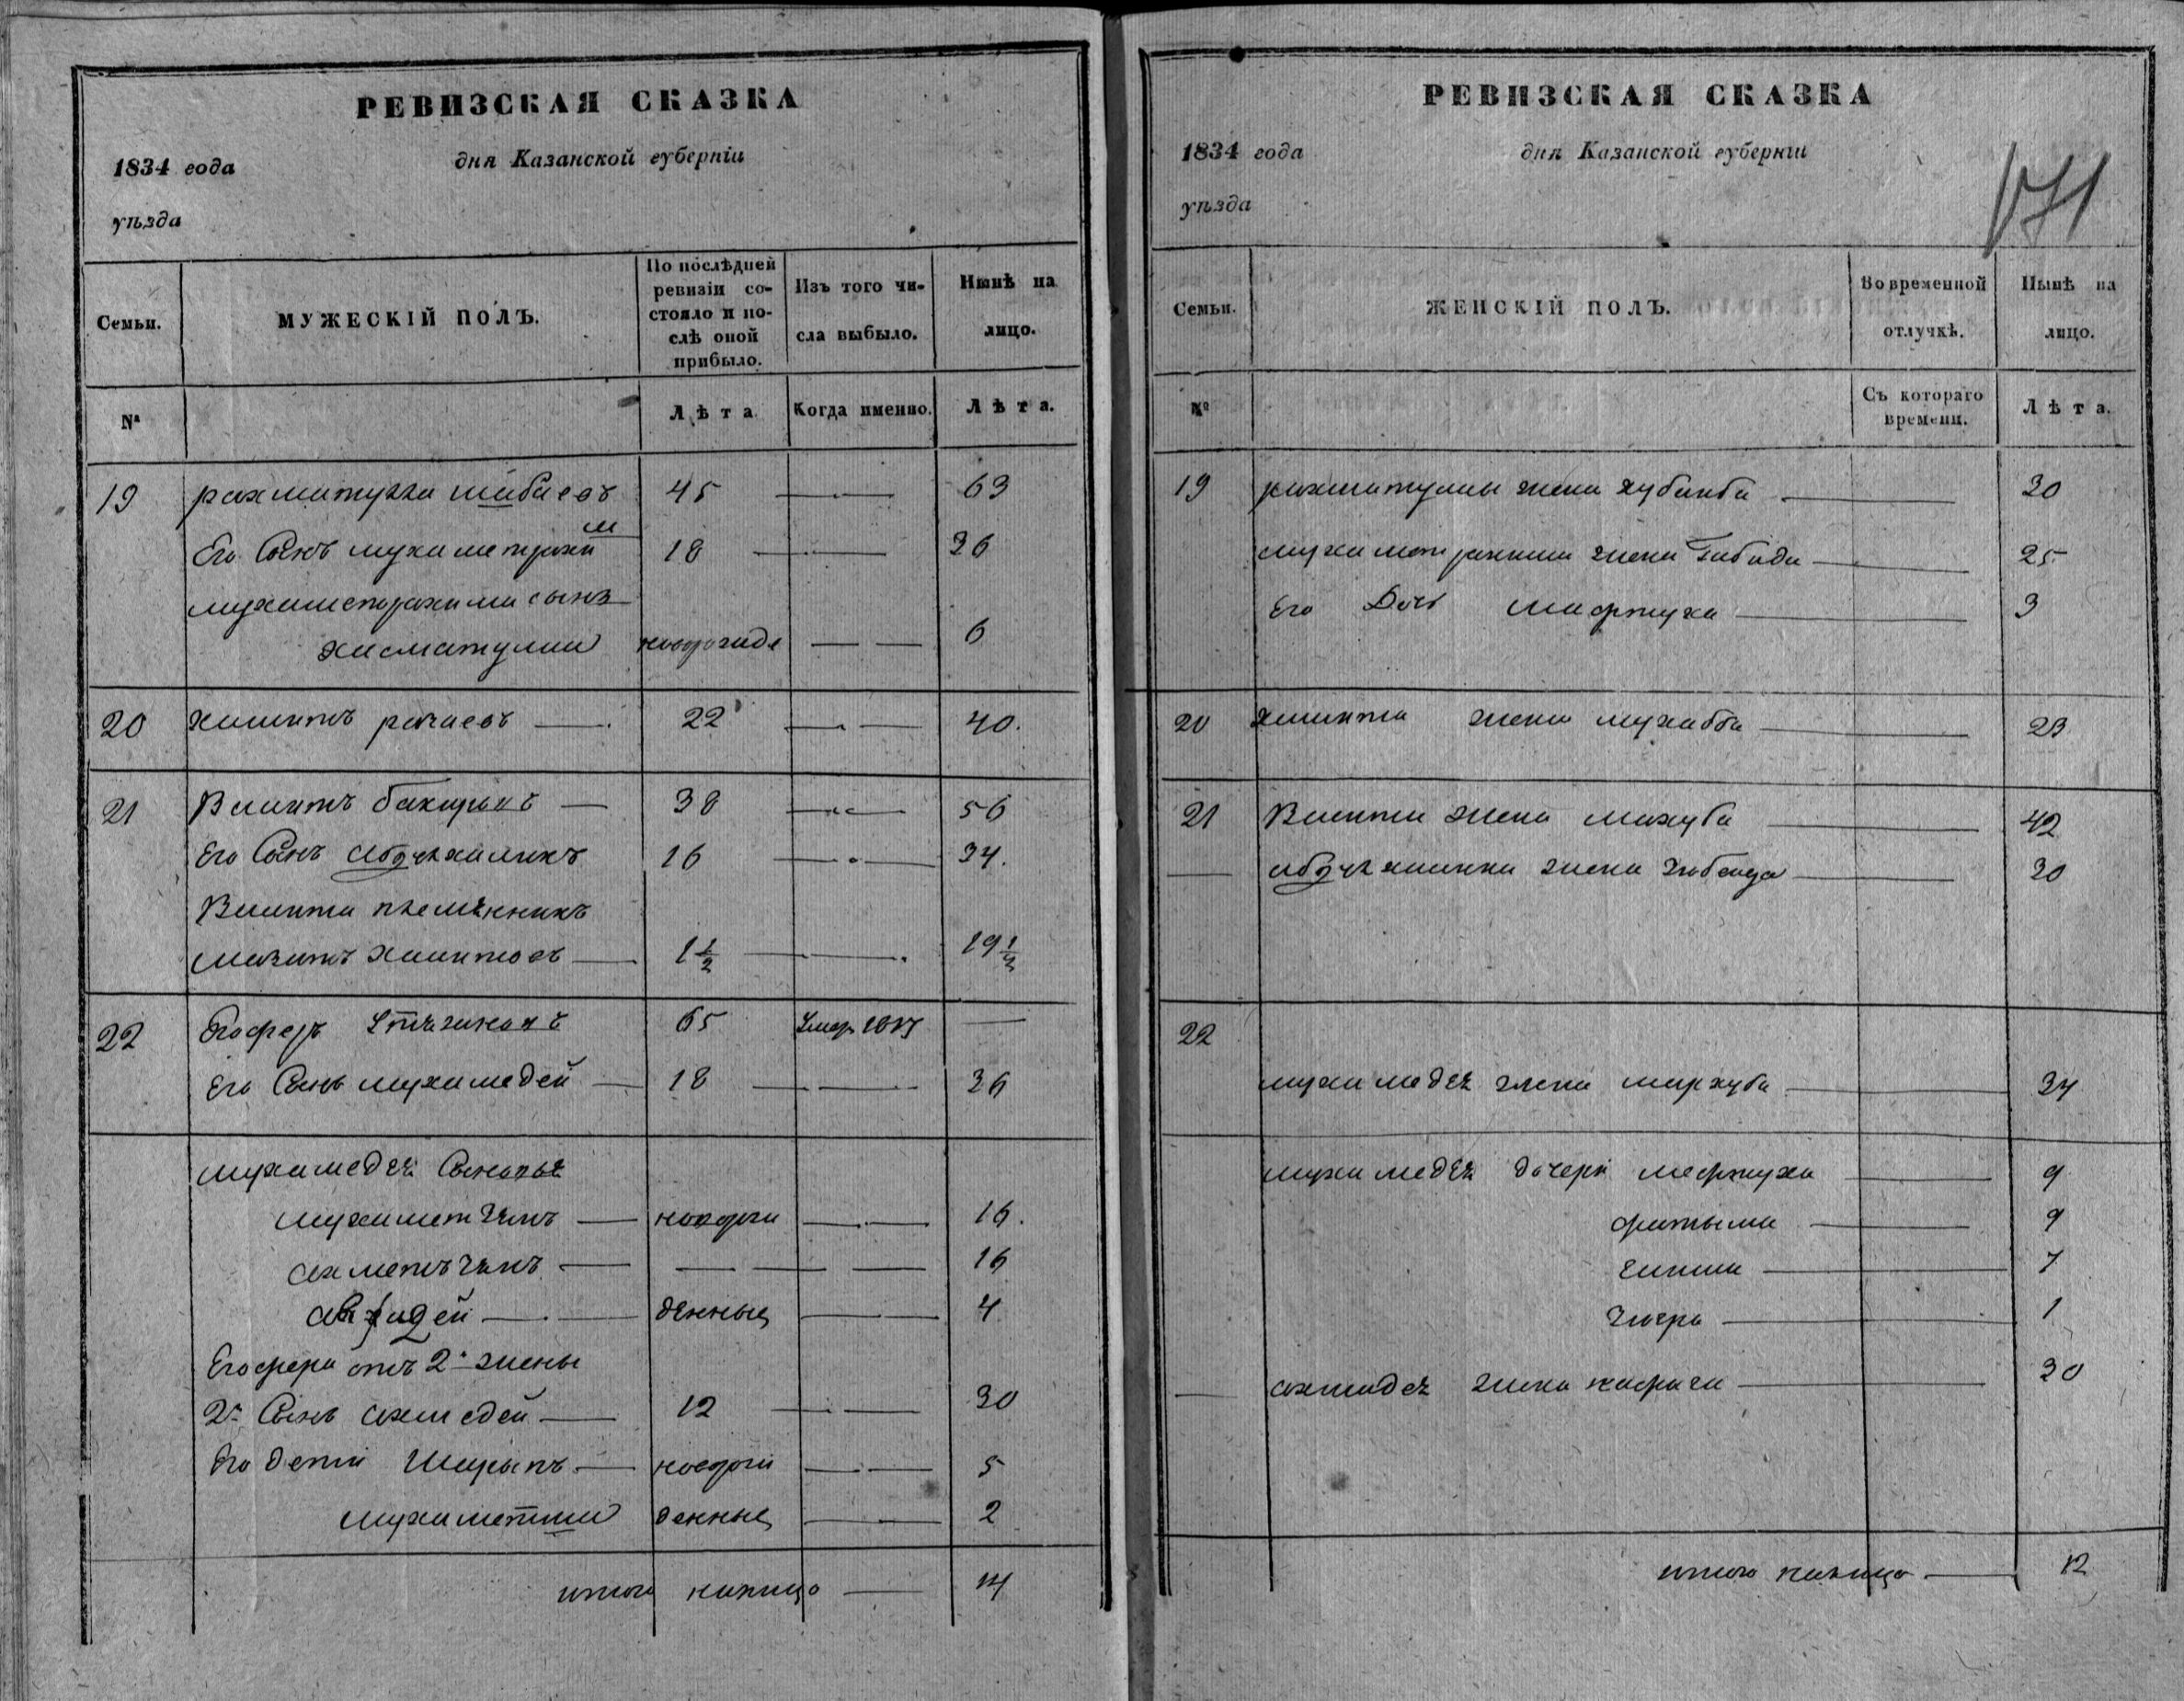 РЕВИЗСКАЯ СКАЗКА
1834 года дня Казанской губерніи
уѣзда
Семьи. МУЖЕСКІЙ ПОЛЪ. По послѣдней ревизіи состояло и послѣ оной прибыло. Изъ того числа выбыло. Нынѣ на лицо.
№ Лѣта Когда именно. Лѣта.
19 рахматулла 45 63
Его Сынъ мухаметрахим 18 36
мухаметрахима сынъ
хисматулла новорожде 6
20 хамитъ 22 40.
21 Валитъ 38 56
Его Сынъ Абдулхаликъ 16 34.
Валита племянникъ
мазитъ хамитовъ 1 1/2 19 1/2
22 Ягоферъ 65 Умеръ
Его Сынъ мухамедей 18 36
мухамедея Сыновья
мухаметжанъ новорож 16.
ахметъжанъ 16
денные 4
Ягофера отъ 2й жены
2й Сынъ ахмедей 12 30
Его дети Шарыпъ новорож 5
мухаметша денные 2
итого налицо 14
РЕВИЗСКАЯ СКАЗКА
1834 года дня Казанской губерніи
171
уѣзда
Семьи. ЖЕНСКІЙ ПОЛЪ. Во временной отлучкѣ. Нынѣ на лицо.
№ Съ котораго времени. Лѣта.
19 рахматуллы жена хубанба 30
мухаметрахима жена Габида 25
Его Дочь мафтуха 3
20 хамита жена мухабба 23
21 Валита жена махуба 42
абдулхалика жена 30
22
мухамедея жена мархуба 34
мухамедея дочери мафтуха 9
фатыма 9
7
1
ахмадея жена 30
итого налицо 12